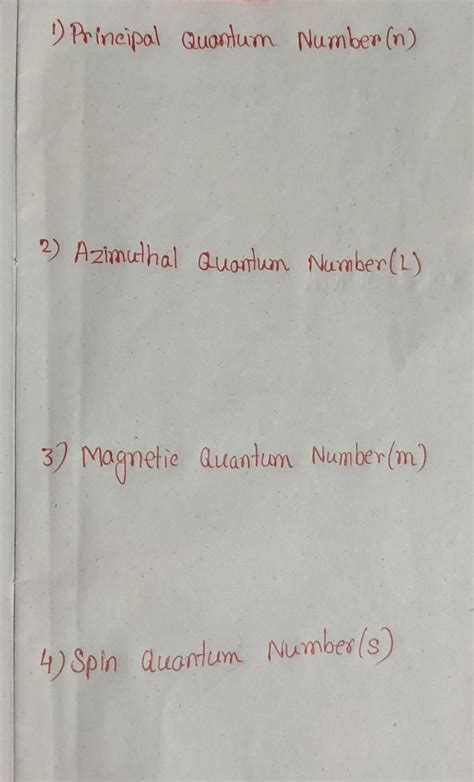 1) Principal Quantum Number(n)
2) Azimuthal Quantum Number(L)
3) Magnetic Quantum Number(m)
4) Spin Quantum Number(s)